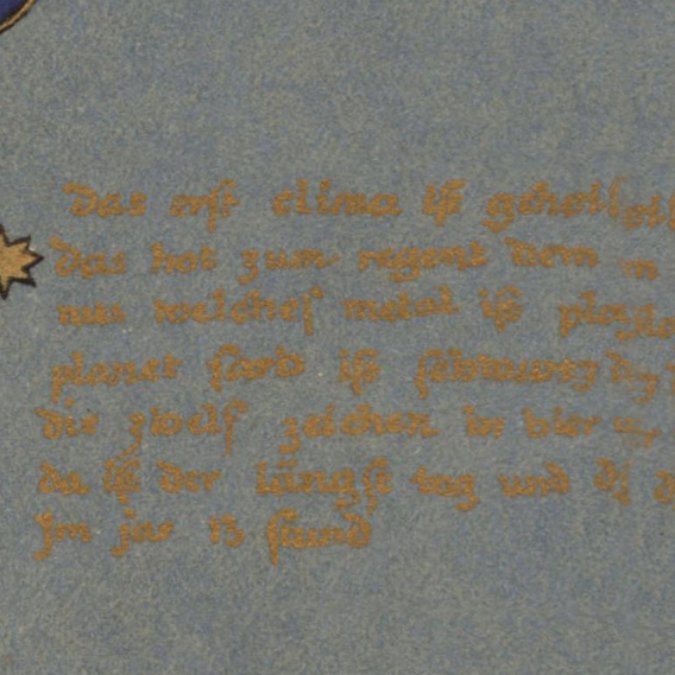 Das erst clima ist geheiss
das hot zum regent dem
nus welches metal ist
planet farb ist
die zwelf zeichen in vier
da ist der längst tag und
Im jar 13 stund